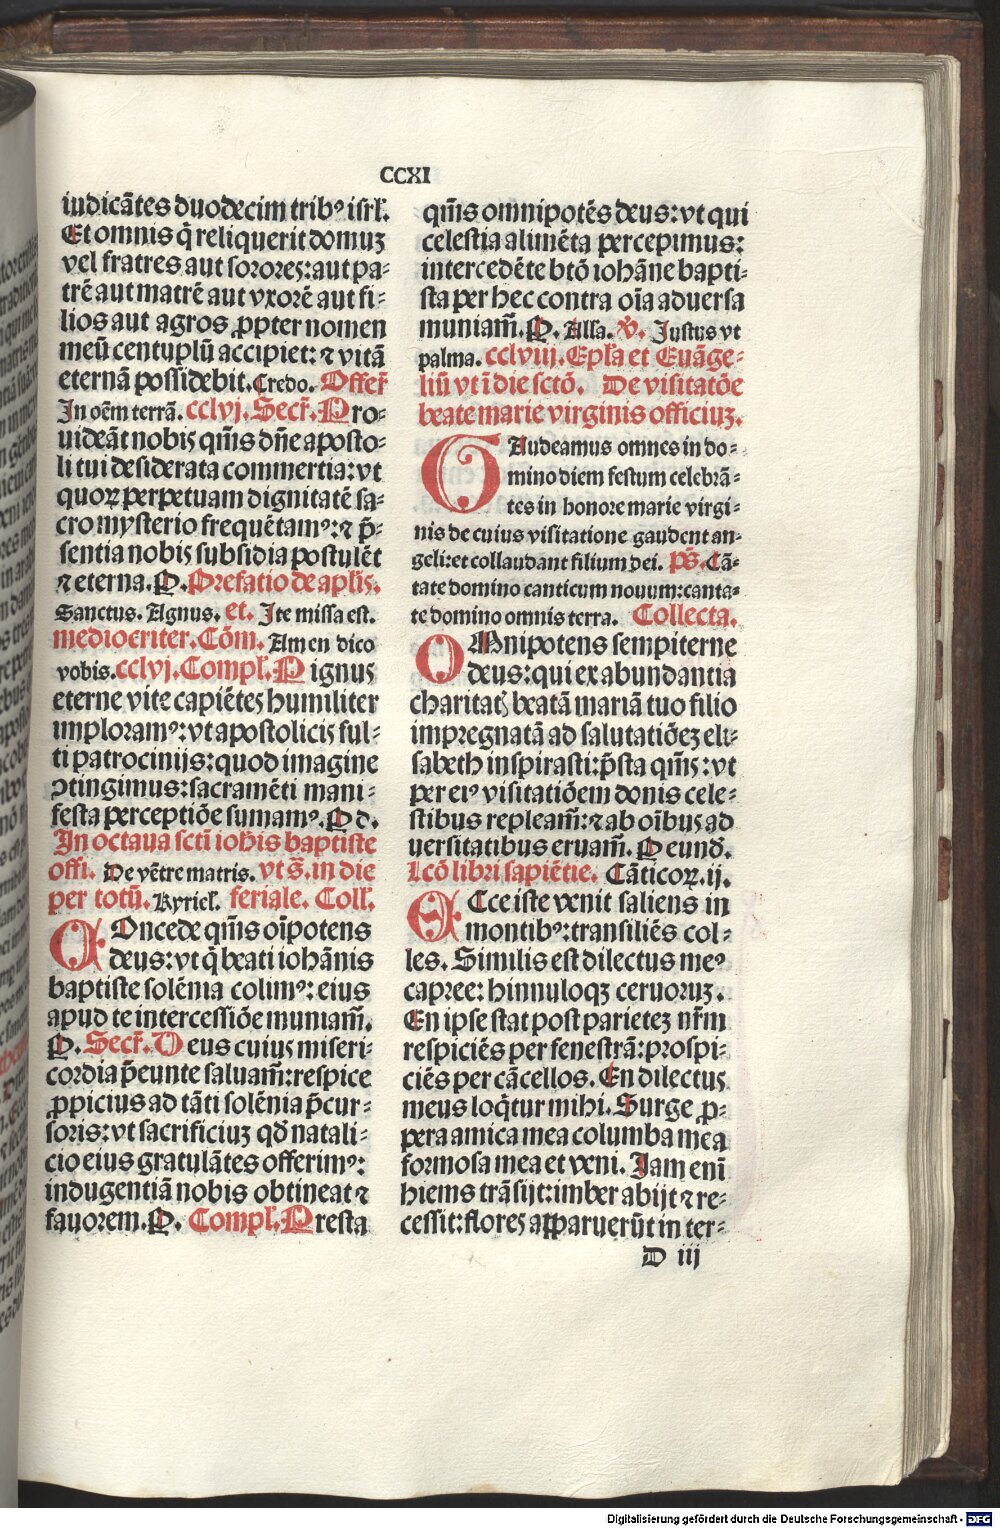 CCXI
iudicātes duodecim tribꝰ isrł.
Et omnis q̄ reliquerit domuȝ
vel fratres aut sorores: aut pa-
trē aut matrē aut vxorē aut fi-
lios aut agros ꝓpter nomen
meū centuplū accipiet: ⁊ vitā
eternā possidebit. Credo. Offer̄
In oēm terrā. cclvj. Secr̄. Pro-
uideāt nobis qm̄s dn̄e aposto-
li tui desiderata commertia: vt
quoꝝ perpetuam dignitatē sa-
cro mysterio frequētamꝰ: ⁊ p̄-
sentia nobis subsidia postulēt
⁊ eterna. P. Prefatio de apl̄is.
Sanctus. Agnus. et. Ite missa est.
mediocriter. Cōm. Amen dico
vobis. cclvj. Compł. Pignus
eterne vite capiētes humiliter
imploramꝰ: vt apostolicis ful-
ti patrocinijs: quod imagine
ꝯtingimus: sacramēti mani-
festa perceptiōe sumamꝰ. P d.
In octaua scti ioh̄is baptiste
offi. De vētre matris. vt s̄. in die
per totū. Kyriel̄. feriale. Coll̄.
COncede qm̄s oīpotens
deus: vt q̄ beati iohānis
baptiste solēnia colimꝰ: eius
apud te intercessiōe muniam̄.
P. Secr̄. Deus cuius miseri-
cordia p̄eunte saluam̄: respice
ꝓpicius ad tāti solēnia p̄cur-
soris: vt sacrificiuȝ qd̄ natali-
cio eius gratulātes offerimꝰ:
indugentiā nobis obtineat ⁊
fauorem. P. Compł. Presta
qm̄s omnipotēs deus: vt qui
celestia alimēta percepimus:
intercedēte btō iohāne bapti-
sta per hec contra oīa aduersa
muniam̄. P. All̄a. ℣. Justus vt
palma. cclviij. Epl̄a et Euāge-
liū vt ī die sctō. De visitatōe
beate marie virginis officiuȝ.
GAudeamus omnes in do-
mino diem festum celebrā-
tes in honore marie virgi-
nis de cuius visitatione gaudent an-
geli: et collaudant filium dei. ps̄. Cā-
tate domino canticum nouum: canta-
te domino omnis terra. Collecta.
OMnipotens sempiterne
deus: qui ex abundantia
charitatꝭ beatā mariā tuo filio
impregnatā ad salutatiōeȝ eli-
sabeth inspirasti: p̄sta qm̄s: vt
per eiꝰ visitatiōem donis cele-
stibus repleam̄: ⁊ ab oībus ad
uersitatibus eruam̄. P eund̄.
Lcō libri sapiētie. Cāticoꝝ. ij.
ECce iste venit saliens in
montibꝰ: transiliēs col-
les. Similis est dilectus meꝰ
capree: hinnuloqȝ ceruoruȝ.
En ipse stat post parieteȝ nr̄m
respiciēs per fenestrā: prospi-
ciēs per cācellos. En dilectus
meus loq̄tur mihi. Surge ꝓ-
pera amica mea columba mea
formosa mea et veni. Jam enī
hiems trāsijt: imber abijt ⁊ re-
cessit: flores apparuerūt in ter-
D iij
Digitalisierung gefördert durch die Deutsche Forschungsgemeinschaft - DFG